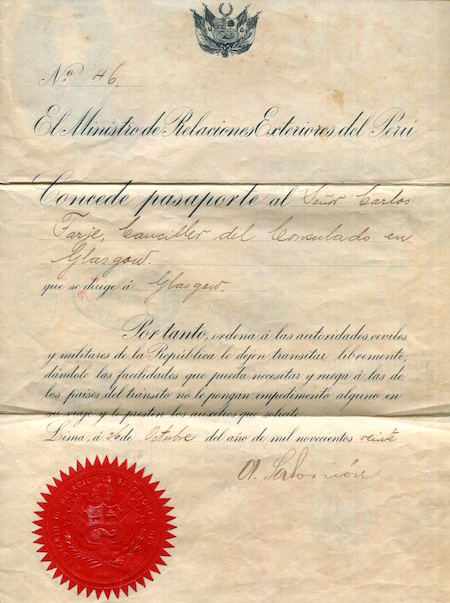 Nº 46.
El Ministro de Relaciones Exteriores del Perú
Concede pasaporte al Señor Carlos
Farje, Canciller del Consulado en
Glasgow.
que se dirige á Glasgow.
Por tanto, ordena á las autoridades civiles
y militares de la República le dejen transitar libremente,
dándole las facilidades que pueda necesitar y ruega á las de
los países del tránsito no le pongan impedimento alguno en
su viaje y le presten los auxilios que solicite.
Lima, á 26 de Octubre del año de mil novecientos veinte
A. Salomón